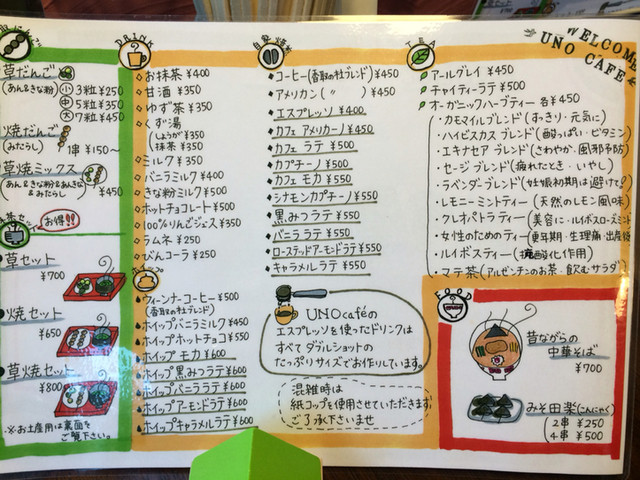 WELCOME
UNO CAFE
草だんご
(あん&きな粉)
小 3粒¥250
中 5粒¥350
大 7粒¥450
焼だんご
(みたらし)
1串 ¥150〜
草焼ミックス
(あん&きな粉&あんきな
&みたらし) ¥450
お得!!
草セット
¥700
焼セット
¥650
草焼セット
¥800
・※お土産用は裏面を
ご覧下さい。
DRINK
お抹茶 ¥400
甘酒 ¥350
ゆず茶 ¥350
くず湯
しょうが ¥350
抹茶 ¥350
ミルク ¥350
バニラミルク ¥400
きな粉ミルク ¥500
ホットチョコレート ¥500
100%りんごジュース ¥350
ラムネ ¥250
びんコーラ ¥250
ウィーンナーコーヒー ¥500
(香取の社ブレンド)
ホイップバニラミルク ¥450
ホイップホットチョコ ¥550
ホイップ モカ ¥600
ホイップ黒みつラテ ¥600
ホイップバニララテ ¥600
ホイップアーモンドラテ ¥600
ホイップキャラメルラテ ¥600
自家焙煎
コーヒー(香取の社ブレンド)¥450
アメリカン( 〃 )¥450
エスプレッソ ¥400
カフェ アメリカーノ ¥450
カフェ ラテ ¥500
カプチーノ ¥500
カフェ モカ ¥550
シナモンカプチーノ ¥550
黒みつラテ ¥550
バニララテ ¥550
ローステッドアーモンドラテ ¥550
キャラメルラテ ¥550
UNO caféの
エスプレッソを使ったドリンクは
すべて ダブルショットの
たっぷりサイズでお作りしています。
混雑時は
紙コップを使用させていただきます
ご了承下さいませ
TEA
アールグレイ ¥450
チャイティーラテ ¥500
オーガニックハーブティー 各¥450
・カモマイルブレンド(すっきり・元気に)
・ハイビスカス ブレンド(酸っぱい・ビタミン)
・エキナセア ブレンド(さわやか・風邪予防)
・セージブレンド(疲れたとき・いやし)
・ラベンダーブレンド(妊娠初期は避けて!)
・レモニーミントティー(天然のレモン風味)
・クレオパトラティー(美容に・ルイボスローズミント)
・女性のためのティー(更年期・生理痛・出産後)
・ルイボスティー(抗酸化作用)
・マテ茶(アルゼンチンのお茶・飲むサラダ)
FOOD
昔ながらの
中華そば
¥700
みそ田楽(こんにゃく)
2串 ¥250
4串 ¥500